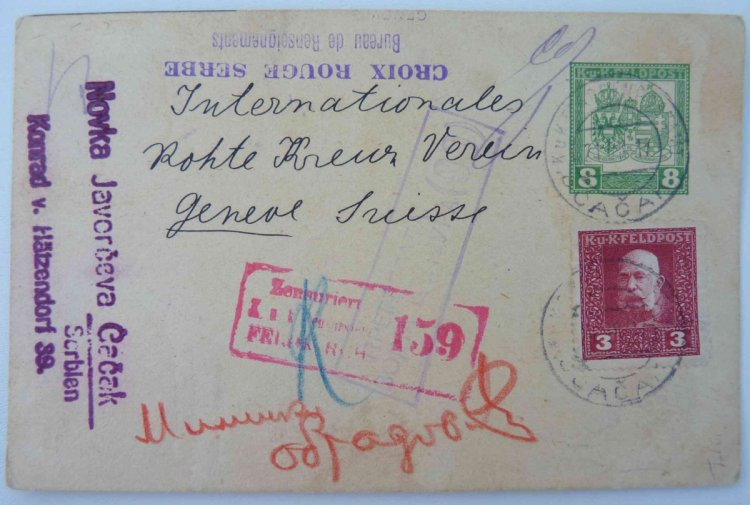 CROIX ROUGE SERBE
Bureau de Renseignements
Internationales
Rohte Kreuz Verein
Geneve Suisse
Novka Javorčeva Čačak
Serbien
Konrad v. Hötzendorf 39.
K.u.K.FELDPOST
8 8
ČAČAK
K.u.K.FELDPOST
3 3
ČAČAK
Zensuriert
159